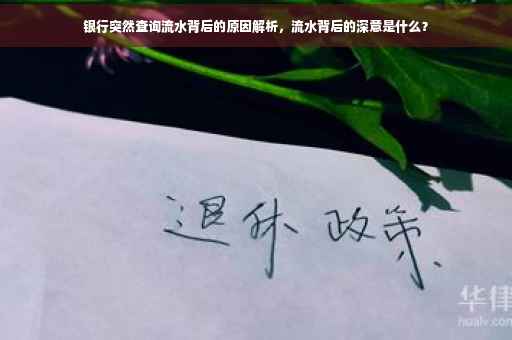 银行突然查询流水背后的原因解析，流水背后的深意是什么？
退休 政策
华律
hualv.com